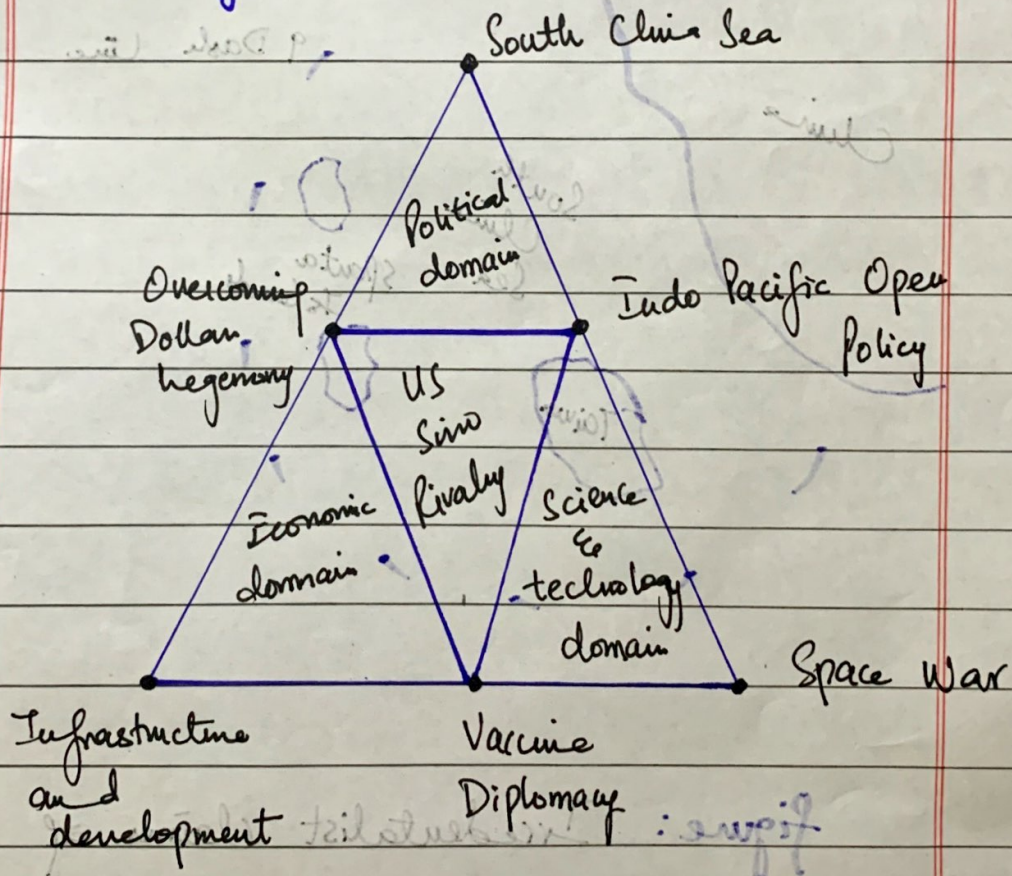 South China Sea
Political
domain
Overcoming
Dollar
hegemony
Indo Pacific Open
Policy
US
Sino
Rivalry
Economic
domain
Science
&
technology
domain
Space War
Infrastructure
and
development
Vaccine
Diplomacy